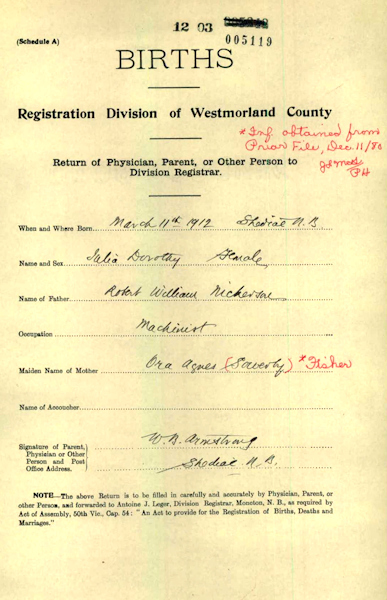 12 03
005119
(Schedule A)
BIRTHS
Registration Division of Westmorland County
*Inf. obtained from
Prior File, Dec. 11/80
Return of Physician, Parent, or Other Person to
Division Registrar.
When and Where Born March 11th 1912 Shediac N.B
Name and Sex Julia Dorothy Female
Name of Father Robert William Nickerson
Occupation Machinist
Maiden Name of Mother Ora Agnes *Fisher
Name of Accoucher
Signature of Parent, Physician or Other Person and Post Office Address. W. B. Armstrong
Shediac N.B.
NOTE—The above Return is to be filled in carefully and accurately by Physician, Parent, or
other Person, and forwarded to Antoine J. Leger, Division Registrar, Moncton, N. B., as required by
Act of Assembly, 50th Vic., Cap. 54: "An Act to provide for the Registration of Births, Deaths and
Marriages."